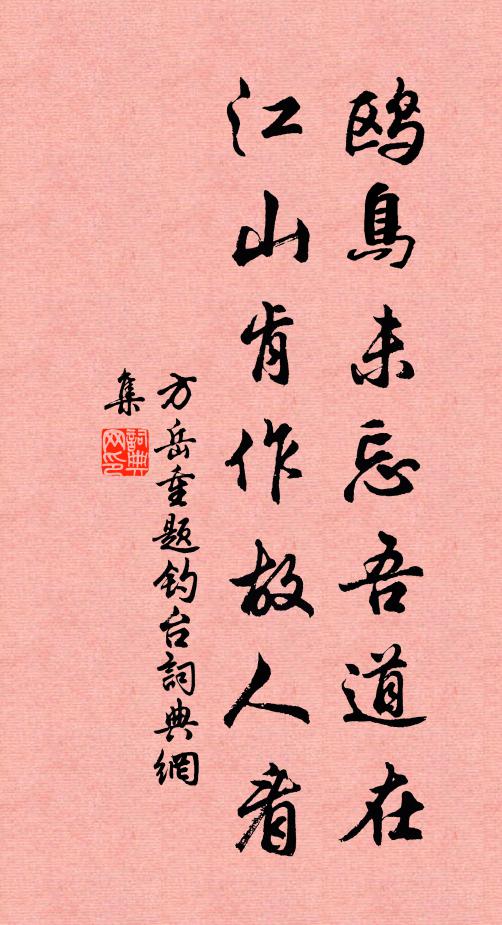 鸥鳥未忘吾道在
江山肯作故人看
方岳重题钓台詞典網
集
詞典网印